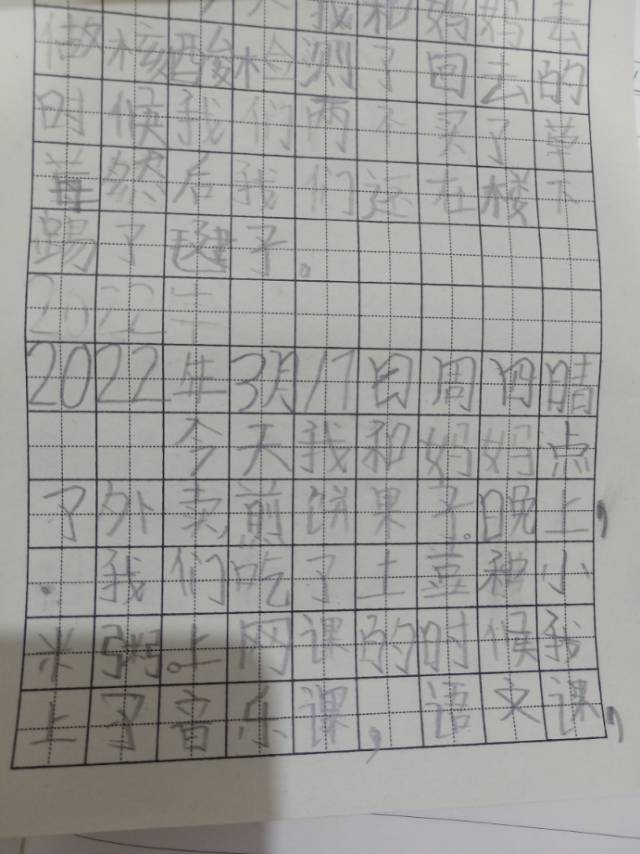 天我和妈妈去
做核酸检测了回去的
时候我们两个买了草
莓然后我们还在楼下
踢了毽子。
2022年
2022年3月17日周四晴
今天我和妈妈点
了外卖,煎饼果子。晚上,
我们吃了土豆和小
米粥。上网课的时候我
上了音乐课,语文课,